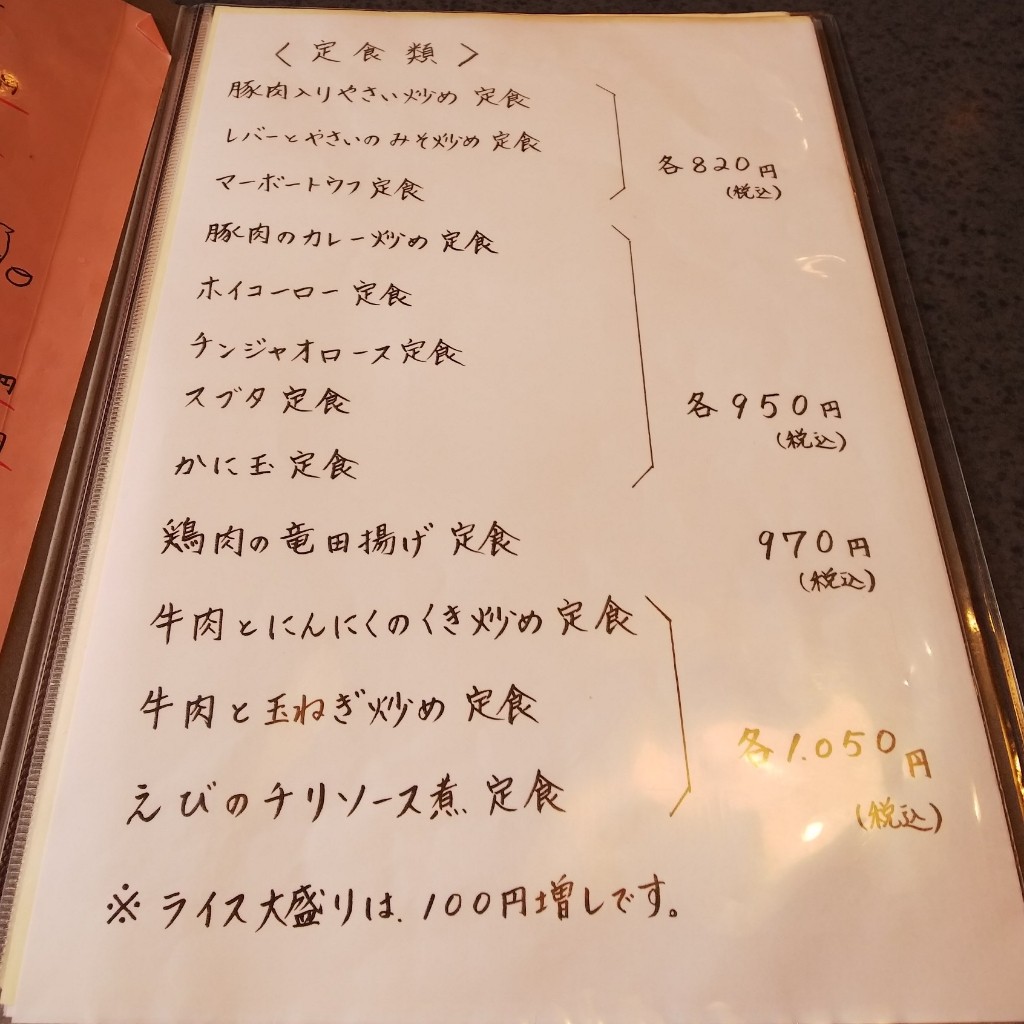 〈定食類〉
豚肉入りやさい炒め 定食
レバーとやさいのみそ炒め 定食
マーボートウフ定食
各820円
(税込)
豚肉のカレー炒め 定食
ホイコーロー 定食
チンジャオロース定食
スブタ 定食
かに玉 定食
各950円
(税込)
鶏肉の竜田揚げ 定食
970円
(税込)
牛肉とにんにくのくき炒め 定食
牛肉と玉ねぎ炒め 定食
えびのチリソース煮 定食
各1.050円
(税込)
※ライス大盛りは、100円増しです。
円